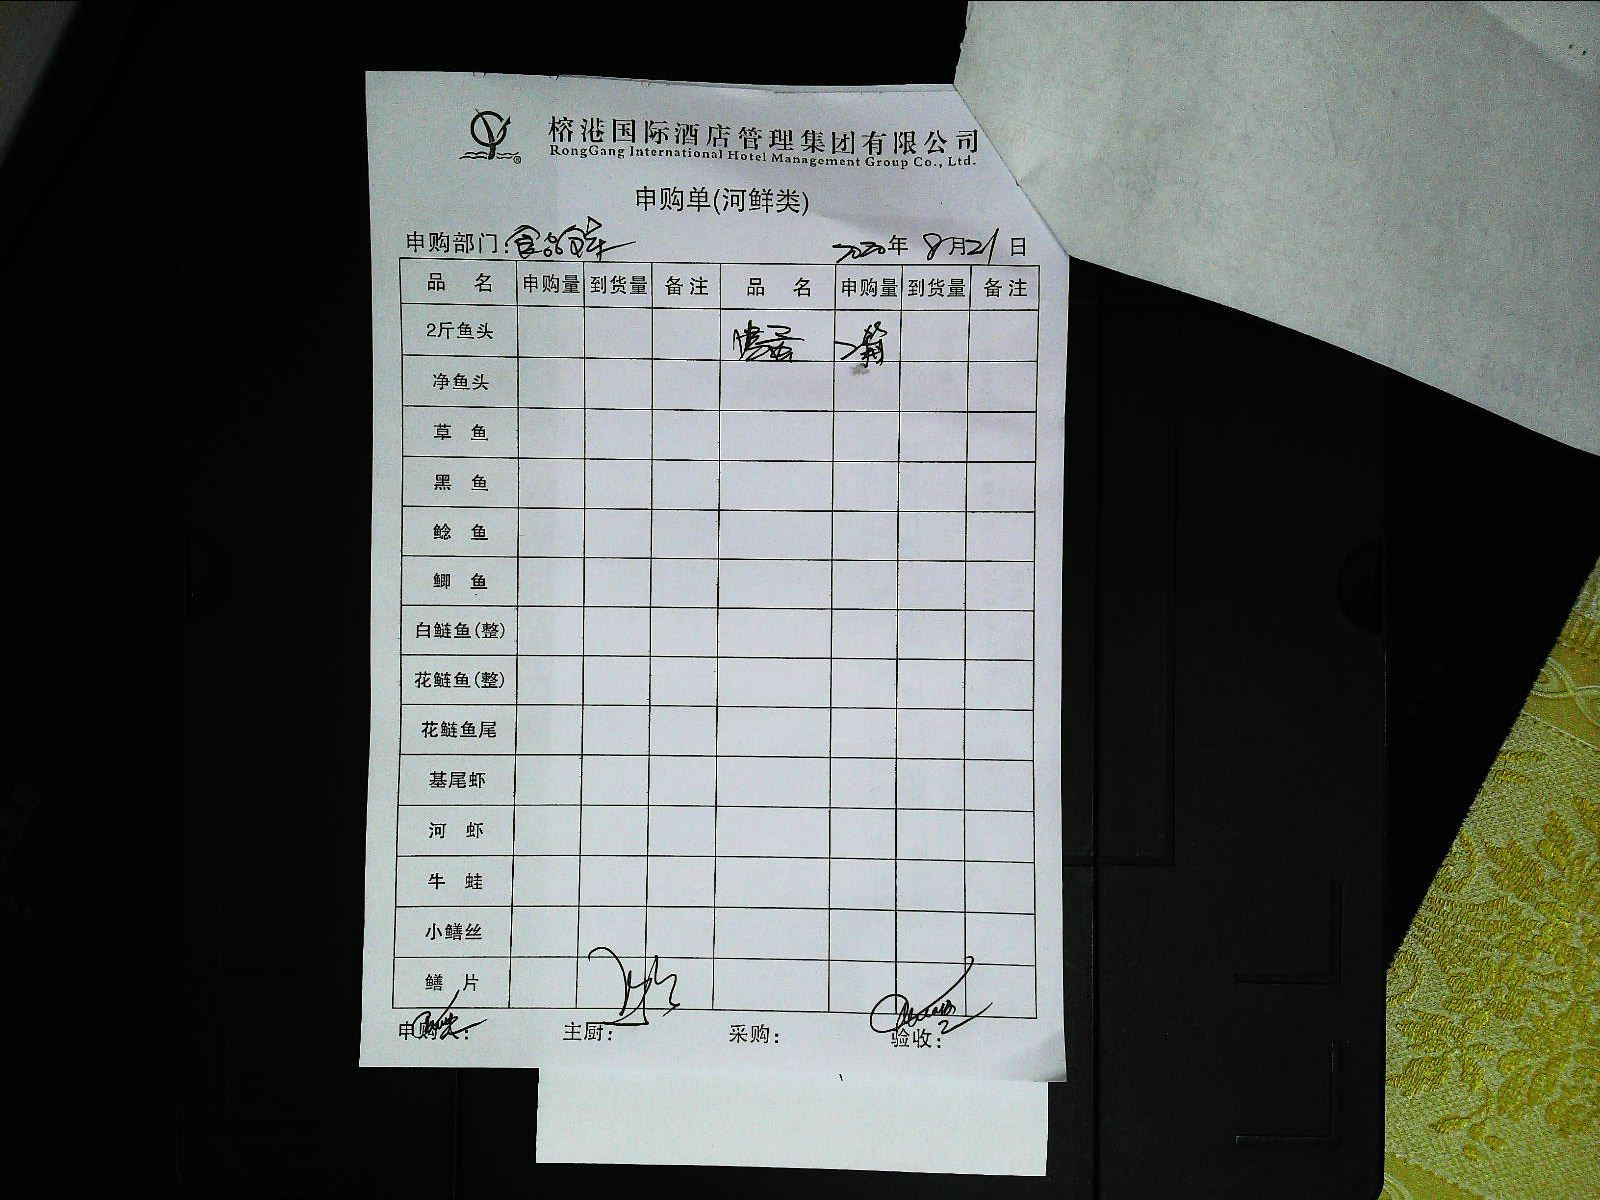 榕港国际酒店管理集团有限公司
RongGang International Hotel Management Group Co., Ltd.
申购单(河鲜类)
申购部门:食品仓库 2020年 8月21日
品 名 申购量 到货量 备注 品 名 申购量 到货量 备注
2斤鱼头
净鱼头
草 鱼
黑 鱼
鲶 鱼
鲫 鱼
白鲢鱼(整)
花鲢鱼(整)
花鲢鱼尾
基尾虾
河 虾
牛 蛙
小鳝丝
鳝 片
申购: 主厨: 采购: 验收: